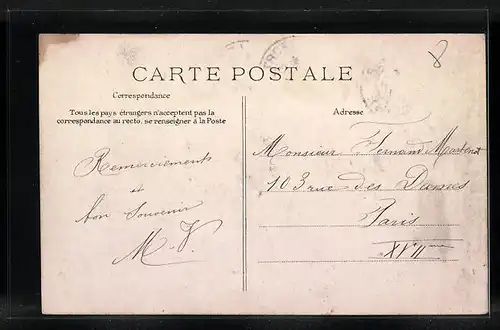 CARTE POSTALE
Correspondance
Tous les pays étrangers n'acceptent pas la
correspondance au recto, se renseigner à la Poste
Remerciements
et
bon Souvenir
M-V.
8
Adresse
Monsieur Fernand
103 rue des Dames
Paris
XVII me